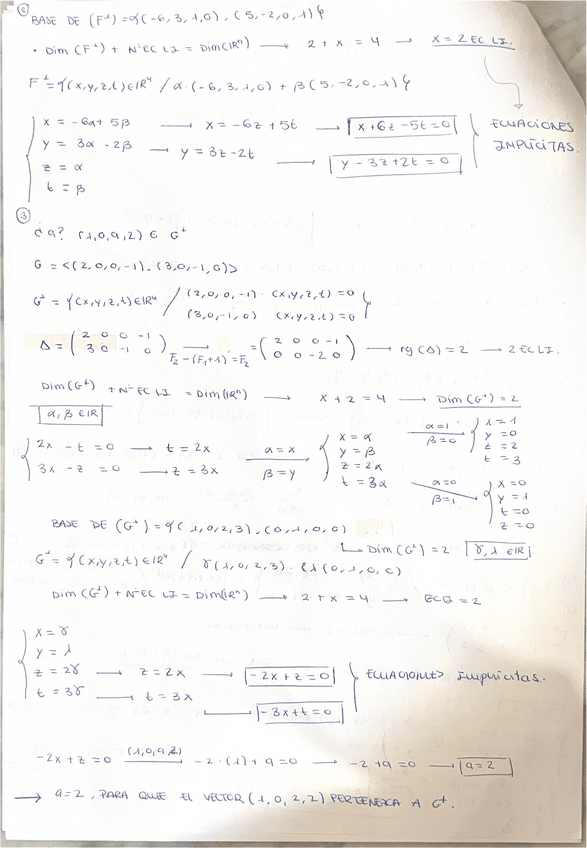 ② BASE DE (F⊥) = {(-6, 3, 1, 0), (5, -2, 0, 1)}
· Dim (F⊥) + Nº EC LI = Dim(IRⁿ) → 2 + x = 4 → x = 2 EC LI.
F⊥ = {(x,y,z,t) ∈ IR⁴ / α·(-6, 3, 1, 0) + β(5, -2, 0, 1)}
x = -6α + 5β → x = -6z + 5t → x + 6z - 5t = 0
y = 3α - 2β → y = 3z - 2t → y - 3z + 2t = 0
z = α
t = β
ECUACIONES
IMPLÍCITAS.
③
¿a? (1,0,a,2) ∈ G⊥
G = <(2,0,0,-1), (3,0,-1,0)>
G⊥ = {(x,y,z,t) ∈ IR⁴ / (2,0,0,-1)·(x,y,z,t) = 0
(3,0,-1,0)·(x,y,z,t) = 0}
Δ = (2 0 0 -1
3 0 -1 0) → F₂ - (F₁+1) = F₂ = (2 0 0 -1
0 0 -2 0) → rg(Δ) = 2 → 2 EC LI.
Dim(G⊥) + Nº EC LI = Dim(IRⁿ) → x + 2 = 4 → Dim(G⊥) = 2
α, β ∈ IR
2x - t = 0 → t = 2x
3x - z = 0 → z = 3x
α = x
β = y
x = α
y = β
z = 2α
t = 3α
α = 1
β = 0
x = 1
y = 0
z = 2
t = 3
α = 0
β = 1
x = 0
y = 1
t = 0
z = 0
BASE DE (G⊥) = {(1,0,2,3), (0,1,0,0)
Dim(G⊥) = 2 γ, λ ∈ IR
G⊥ = {(x,y,z,t) ∈ IR⁴ / γ(1,0,2,3) · λ(0,1,0,0)
Dim(G⊥) + Nº EC LI = Dim(IRⁿ) → 2 + x = 4 → EC LI = 2
x = γ
y = λ
z = 2γ → z = 2x → -2x + z = 0
t = 3γ → t = 3x → -3x + t = 0
ECUACIONES Implícitas.
-2x + z = 0 (1,0,a,2) → -2·(1) + a = 0 → -2 + a = 0 → a = 2
→ a = 2, PARA QUE EL VECTOR (1, 0, 2, 2) PERTENEZCA A G⊥.